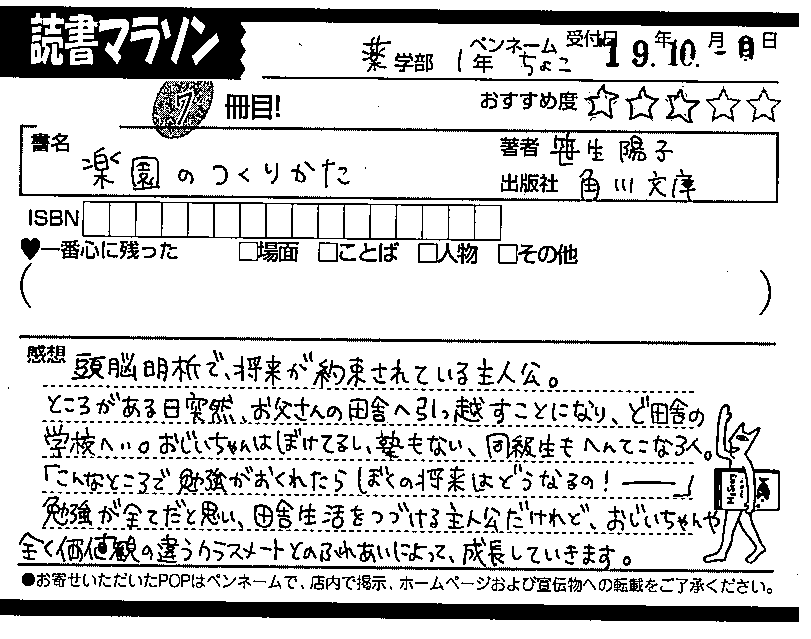 読書マラソン
薬学部 1年 ペンネーム ちょこ 受付日 19年10月 日
7冊目!
おすすめ度 ☆☆☆☆☆
書名 楽園のつくりかた
著者 笹生陽子
出版社 角川文庫
ISBN
♥一番心に残った □場面 □ことば □人物 □その他
( )
感想 頭脳明析で、将来が約束されている主人公。
ところがある日突然、お父さんの田舎へ引っ越すことになり、ど田舎の
学校へ…。おじいちゃんはぼけてるし、塾もない、同級生もへんてこな3人。
「こんなところで勉強がおくれたらぼくの将来はどうなるの!――」
勉強が全てだと思い、田舎生活をつづける主人公だけれど、おじいちゃんや
全く価値観の違うクラスメートとのふれあいによって、成長していきます。
●お寄せいただいたPOPはペンネームで、店内で掲示、ホームページおよび宣伝物への転載をご了承ください。